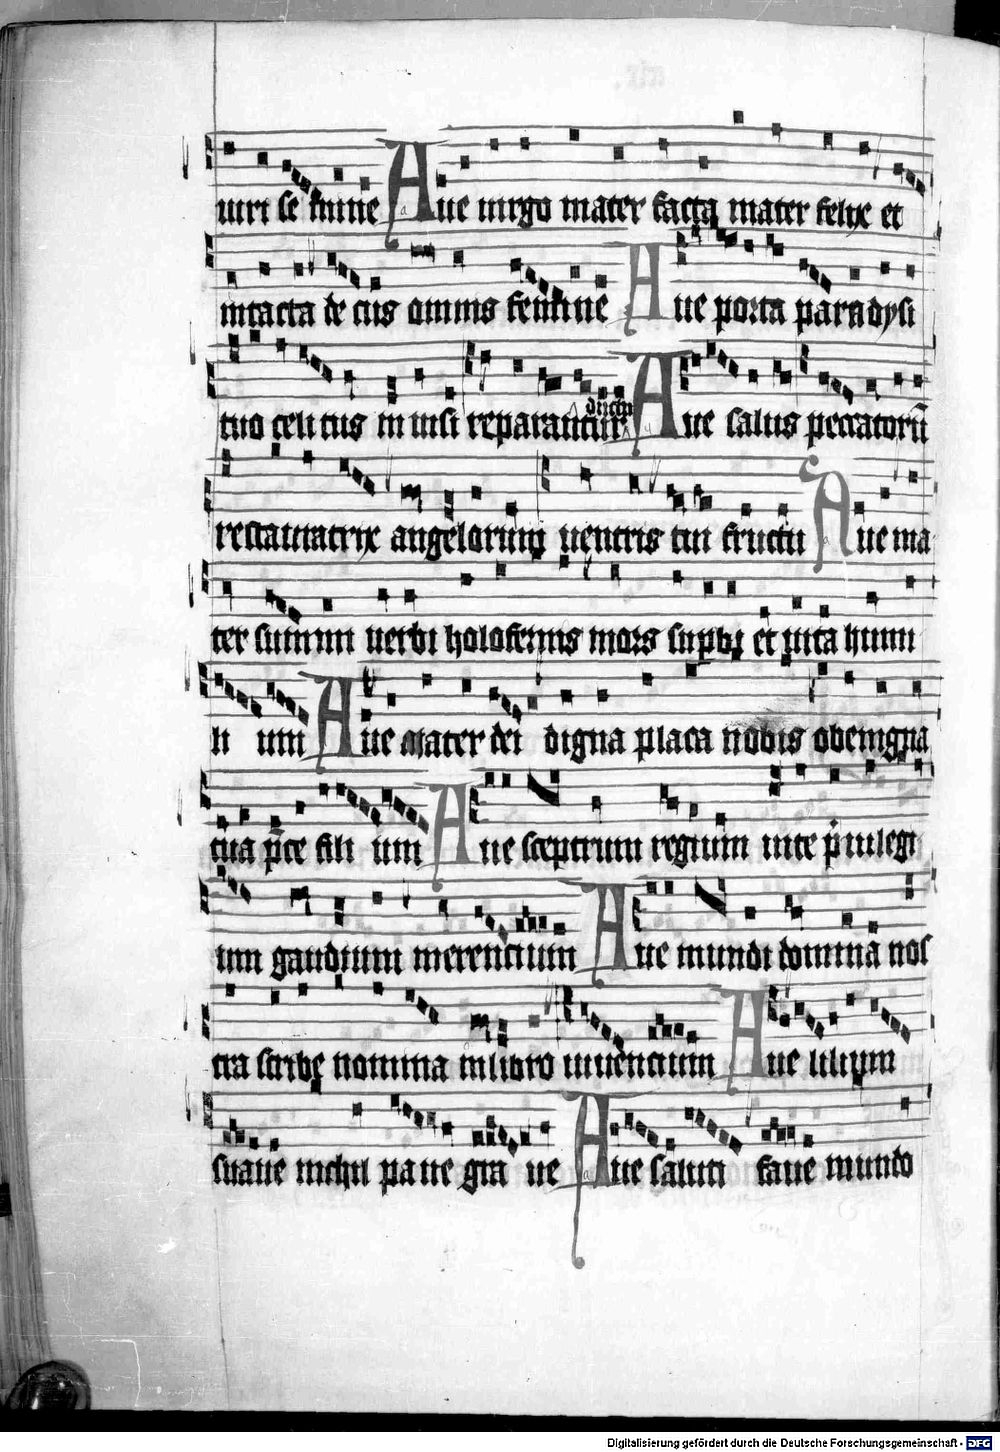 uiri se mine Aue uirgo mater facta mater felix et
intacta de cus omnis femine Aue porta paradysi
tuo celi tus in uisi reparantur Aue salus peccatorū
restauratrix angelorum uentris tui fructu Aue ma
ter summi uerbi holofernis mors supbi et uita humi
li um Aue mater dei digna placa nobis obenigna
tua pce fili um Aue sceptrum regium inte priuilegi
um gaudium merencium Aue mundi domina nos
tra scribe nomina inlibro uiuencium Aue lilium
suaue nichil pa ue gra ue Aue saluti faue mundo
Digitalisierung gefördert durch die Deutsche Forschungsgemeinschaft - DFG